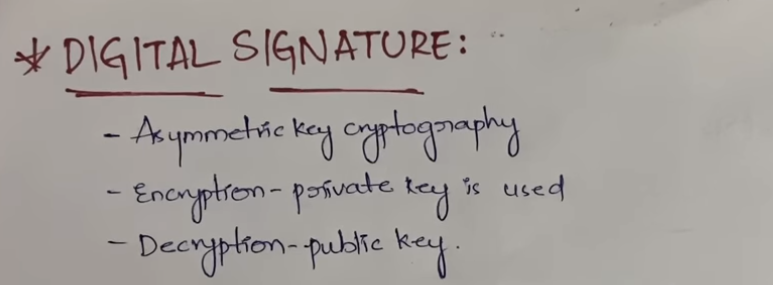 * DIGITAL SIGNATURE:
- Asymmetric key cryptography
- Encryption - private key is used
- Decryption - public key.